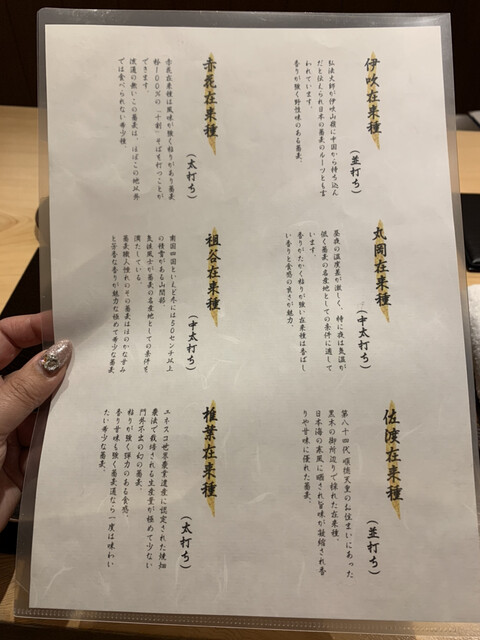 伊吹在来種
(並打ち)
弘法大師が伊吹山麓に中国から持ち込ん
だと伝えられ日本の蕎麦のルーツとも言
われています。
香りが強く野性味のある蕎麦。
赤花在来種
(太打ち)
赤花在来種は風味が強く粘りがあり蕎麦
粉100%の「十割」そばを打つことが
できます。
流通の無いこの蕎麦は、ほぼこの地以外
では食べられない希少種
丸岡在来種
(中太打ち)
昼夜の温度差が激しく、特に夜は気温が
低く蕎麦の名産地としての条件に適して
います。
香りがたかく粘りが強い在来種は香ばし
い香りと食感の良さが魅力。
祖谷在来種
(中太打ち)
南国四国といえど冬には50センチ以上
の積雪がある山間部。
気候風土が蕎麦の名産地としての条件を
満たしている。
蕎麦職人憧れのその蕎麦はほのかな甘み
と芳香な香りが魅力な極めて希少な蕎麦
佐渡在来種
(並打ち)
第八十四代 順徳天皇のお住まいにあった
黒木の御所辺りで採れた在来種、
日本海の寒風に晒され旨味が凝縮され香
りや甘味に優れた蕎麦。
椎葉在来種
(太打ち)
ユネスコ世界農業遺産に認定された焼畑
農法で栽培される生産量が極めて少ない
門外不出の幻の蕎麦。
粘りが強く弾力のある食感、
香り甘味も強く蕎麦通なら一度は味わい
たい希少な蕎麦。